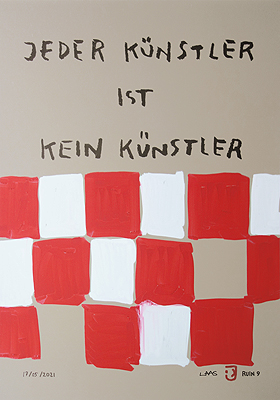 JEDER KÜNSTLER
IST
KEIN KÜNSTLER
17/15/2021
LAAS RUIN 9